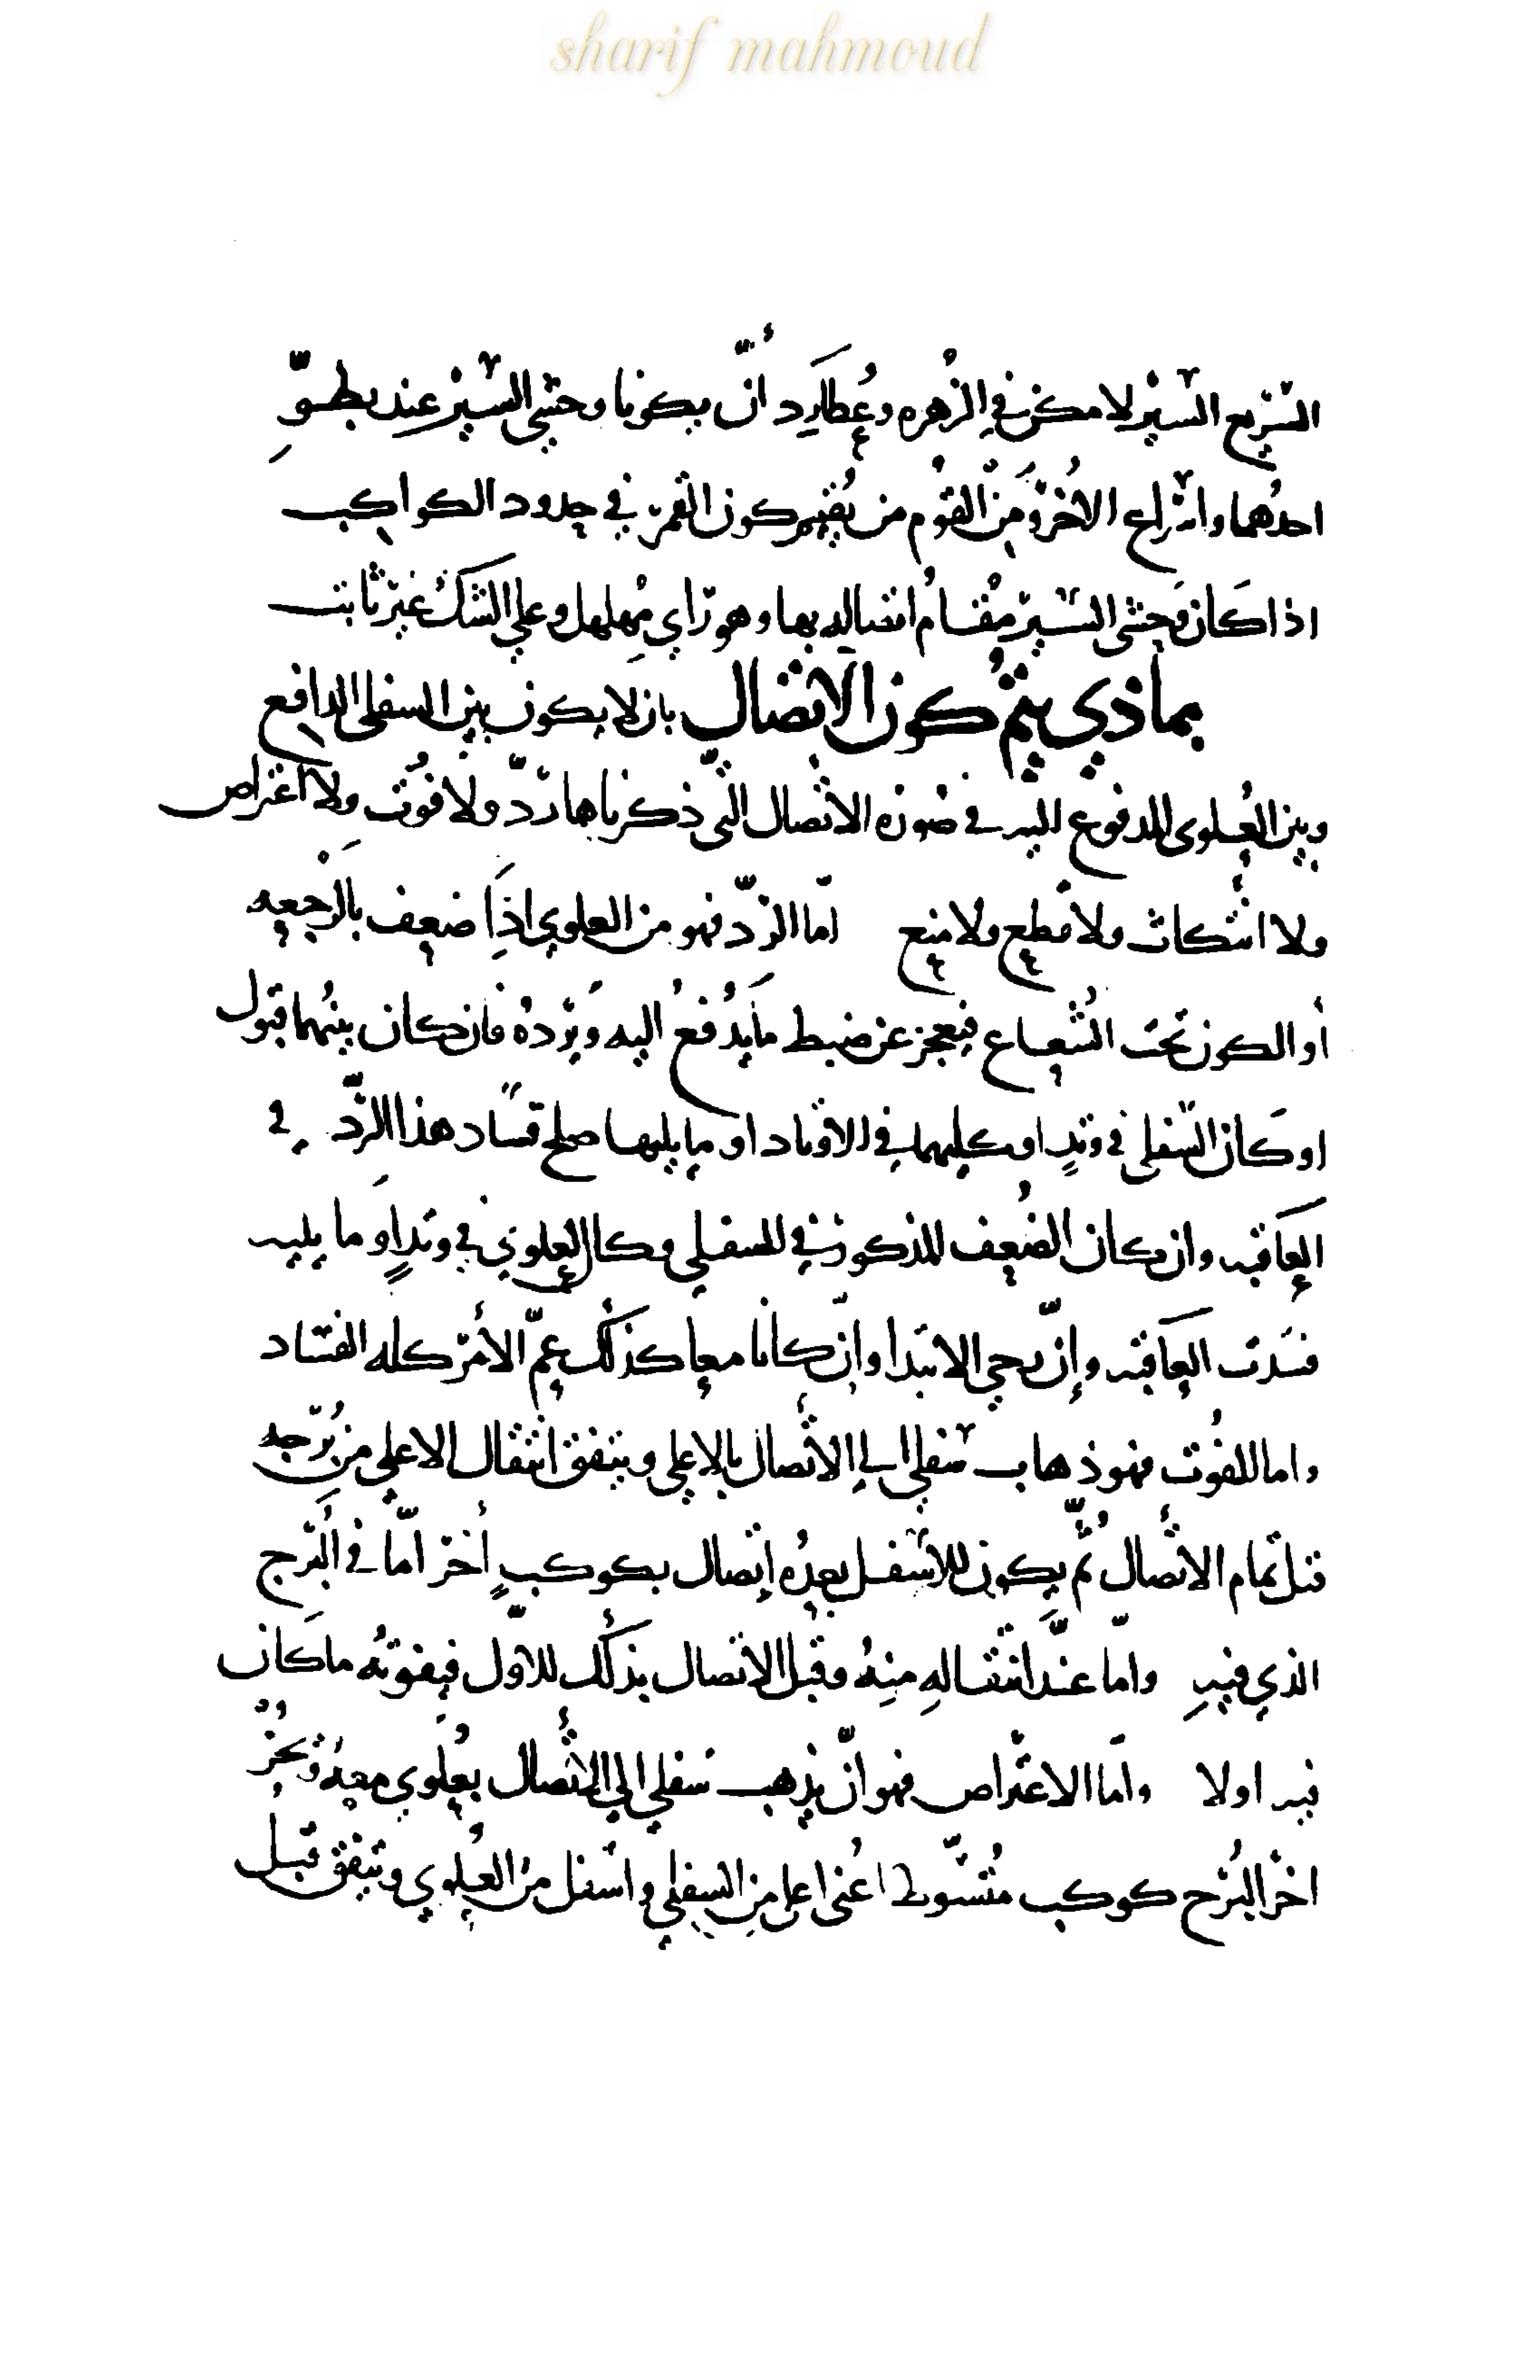 sharif mahmoud
السّريع السّير لا مكن في الزُهره وعُطارِد أنّ يكونا وحشي السّير عند بطوّ
احدُهما واسْراع الاُخر وَمِنَّ القوْم من يُقيم كون القمر في حدود الكواكب
اذا كَان وَحشى السّير مقام اتصاله بها وهو رَاي مُهلهل وعلى الشكّ غير ثابت
بماذي يتم كون الاتصال بان لا يكون بين السفلي الدافع
وبين العُلوي المدفوع اليه في صُورْه الاتصال التي ذكرناها ردّ ولا فوُت ولا اعتراض
ولا انتكاث ولا قطع ولا منع امّا الردّ فهو من العلوي اذَا ضعف بالرجعه
أو الكون تحت الشُعاع فيعجز عن ضبط مَا يدُفعُ اليه وَيردهُ فان كان بينُهما قبول
او كَان السّفلي في وتدٍ او كليهما في الاوتاد او ما يليها صلح فسَاد هذا الردّ في
العَاقبه وان كان الضُعف المذكور في السفلي وكان العلوي في وتدٍ اَو ما يليه
فسَدت العَاقبه وإنّ رجي الابتدا وانّ كانا معا كذَلك عمّ الأمر كله الفسَاد
واما الفوُت فهو ذهاب سفلي الى الاتصال بالاعلى ويتفق انتقال الاعلى من بُرجه
قبل تمام الاتصال ثُمّ يكون للاسفل بعدُه إتصال بكوكبٍ أخر امّا في البُرج
الذي فيه وامّا عندَ انتقالهِ منهُ وقبل الاتصال بذَلك الاوّل فيفوتُه ما كَان
فيه اولا وامَّا الاعتراض فهو انّ يذهب سفلي الى الاتصال بعُلوي معهُ وَنُحو
اخر البُرج كوكب مُتسّوط اعُني اعلى من السفلي واسفل من العُلوي ويتفق قبل